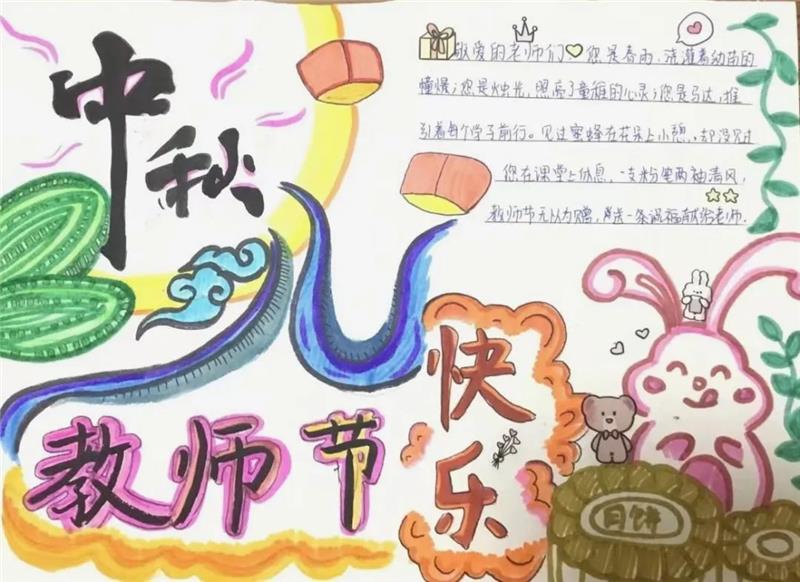 中秋
敬爱的老师们您是春雨,浇灌着幼苗的
憧憬;您是烛光,照亮了童稚的心灵;您是马达,推
引着每个学子前行。见过蜜蜂在花朵上小憩,却没见过
您在课堂上休息,一支粉笔两袖清风,
教师节无以为赠,发送一条祝福献给老师.
教师节
快乐
月饼